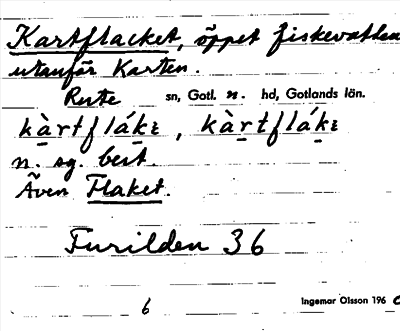 Kartflacket, öppet fiskevatten
utanför Karten.
Rute sn, Gotl. n. hd, Gotlands län.
kàrtflákɛ, kàrtflákɛ
n. sg. best.
Även Flaket.
Furilden 36
6 Ingemar Olsson 196